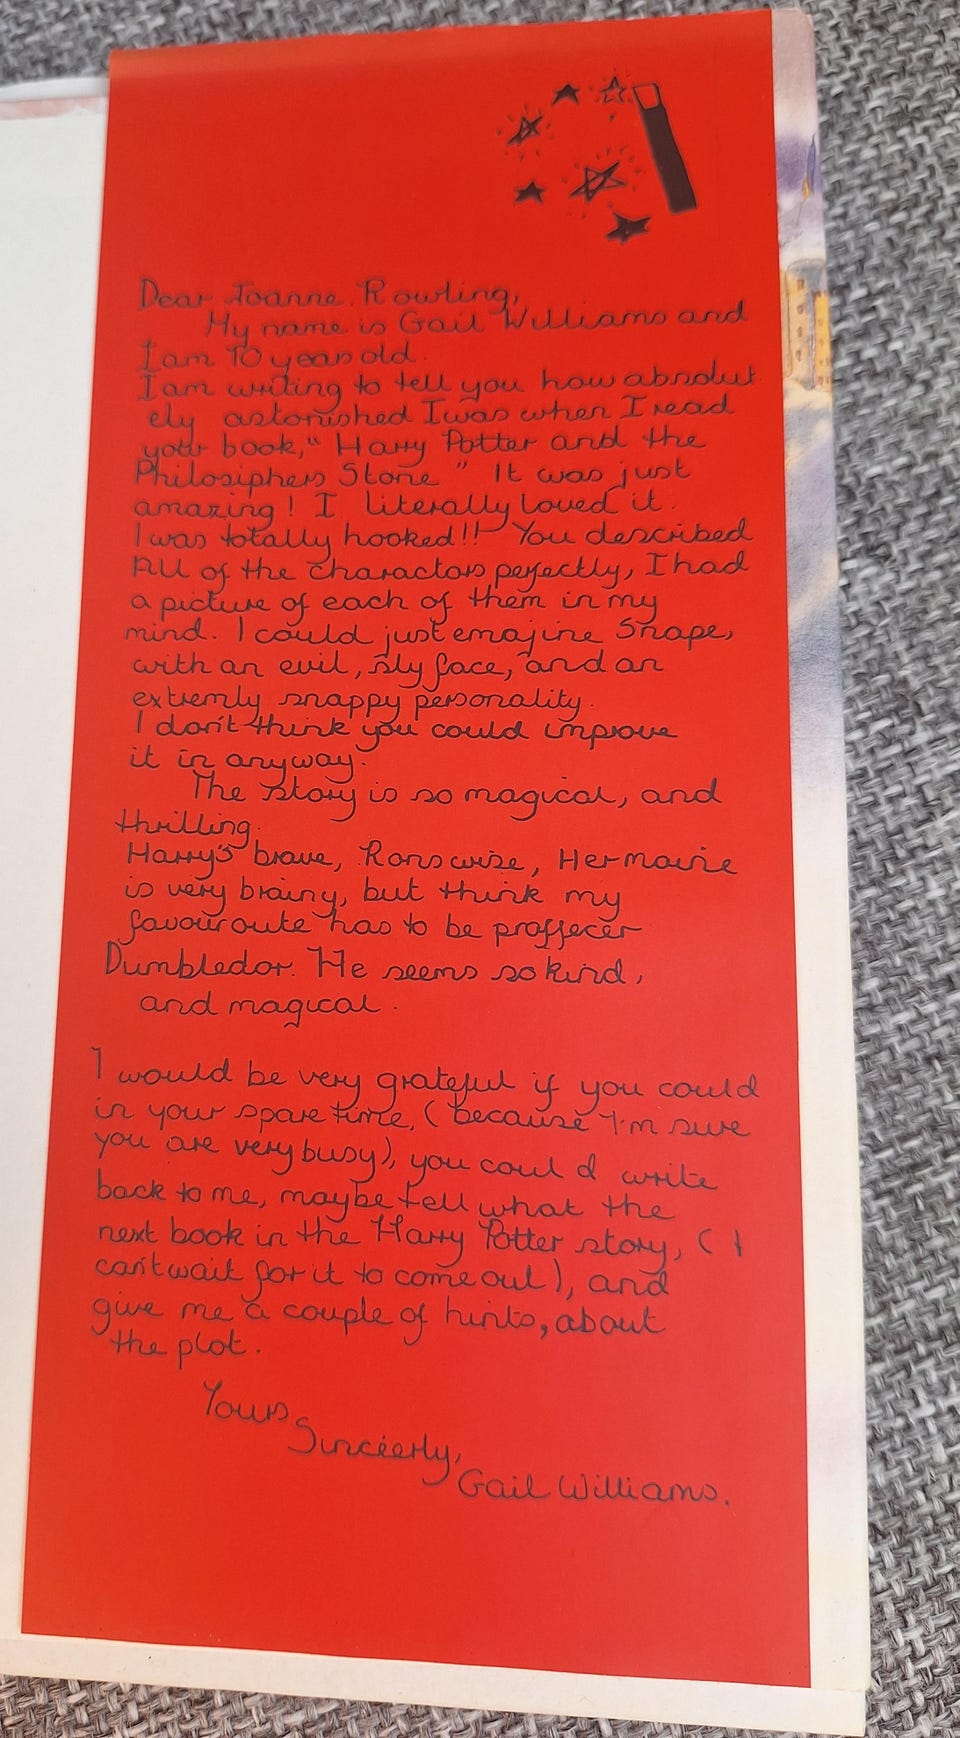 Dear Joanne Rowling,
My name is Gail Williams and
I am 10 years old.
I am writing to tell you how absolut
ely astonished I was when I read
your book, "Harry Potter and the
Philosiphers Stone" It was just
amazing! I literally loved it.
I was totally hooked!! You described
All of the charactors perfectly, I had
a picture of each of them in my
mind. I could just emajine Snape,
with an evil, sly face, and an
extremly snappy personality.
I don't think you could improve
it in anyway.
The story is so magical, and
thrilling.
Harry's brave, Rons wise, Hermowie
is very brainy, but think my
favouroute has to be proffecer
Dumbledor. He seems so kind,
and magical.
I would be very grateful if you could
in your spare time, (because I'm sure
you are very busy), you could write
back to me, maybe tell what the
next book in the Harry Potter story, (I
can't wait for it to come out), and
give me a couple of hints, about
the plot.
Yours
Sincéerly,
Gail Williams.